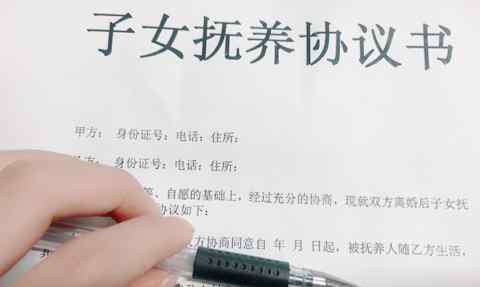 子女抚养协议书
甲方： 身份证号：电话：住所：
方： 身份证号：电话：住所：
等、自愿的基础上，经过充分的协商，现就双方离婚后子女抚
协议如下：
方协商同意自 年 月 日起，被抚养人随乙方生活，